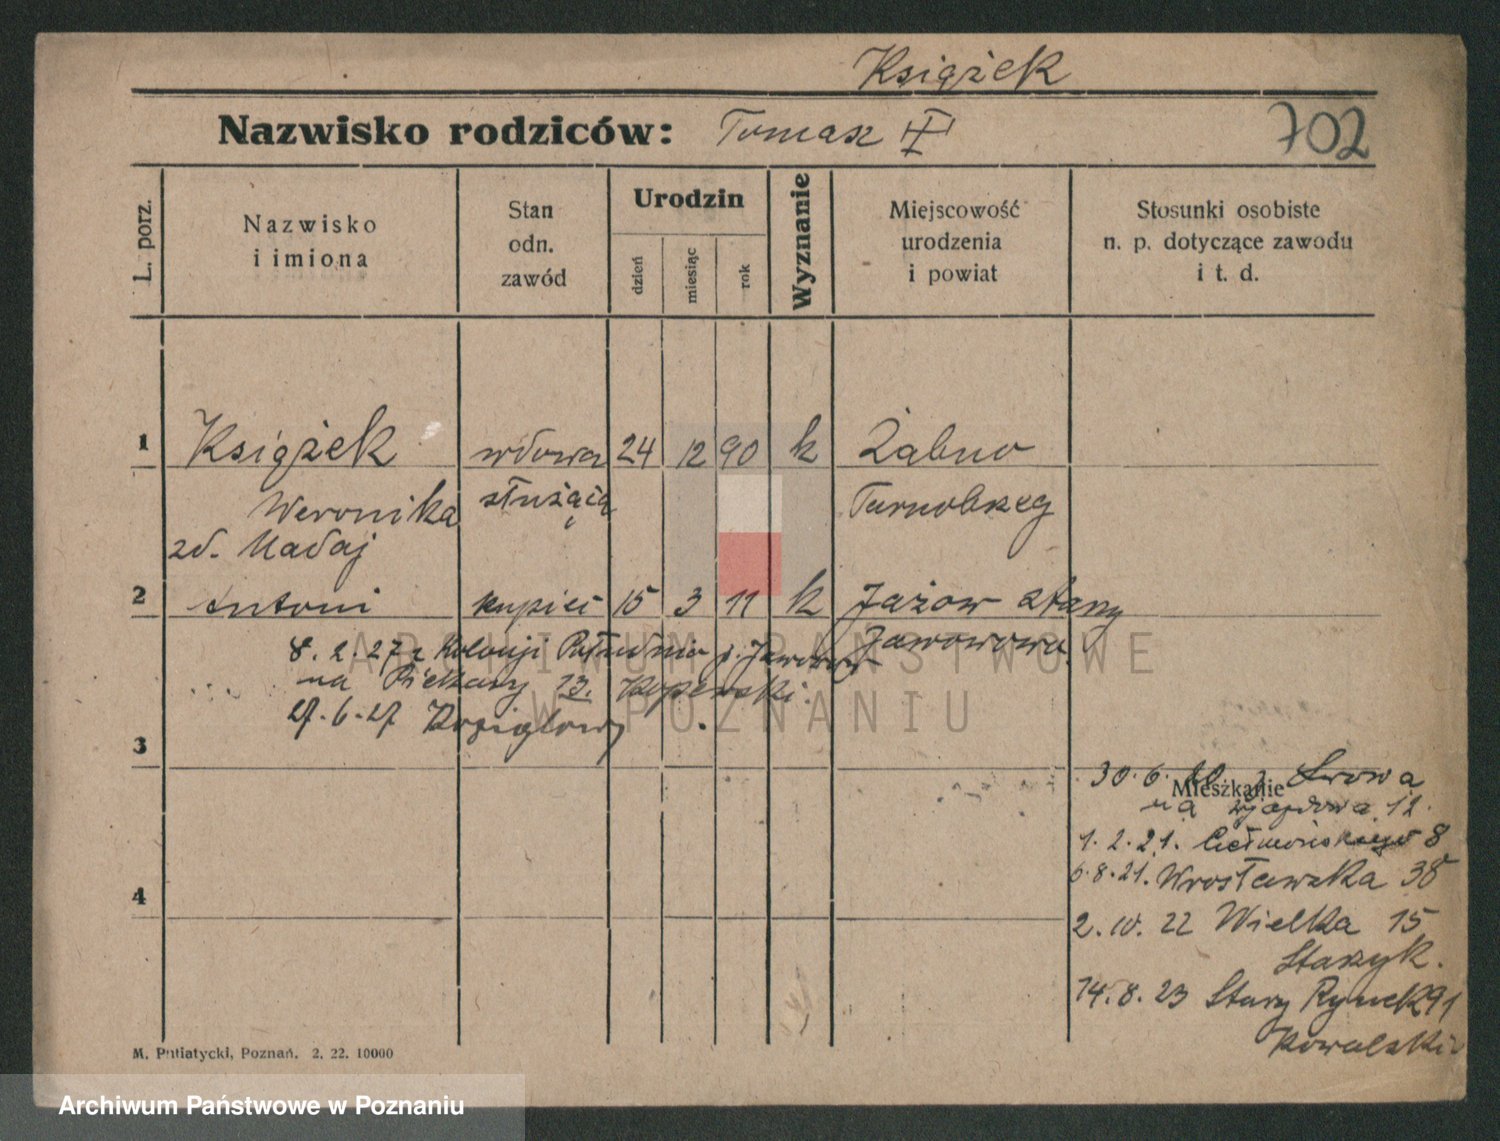 Książek
Nazwisko rodziców: Tomasz
702
L. porz.
Nazwisko i imiona
Stan odn. zawód
Urodzin
dzień
miesiąc
rok
Wyznanie
Miejscowość urodzenia i powiat
Stosunki osobiste n. p. dotyczące zawodu i t. d.
1 Książek wdowa 24 12 90 k Żabno
Weronika służąca Tarnobrzeg
zd. Madaj
2 Antoni kupiec 15 3 11 k Jażow stary
Jaworowa
8. 2. 27 z Kolonji
na Piekary 13.
27. 6. 27
3
Mieszkanie
30. 6. 20 z Lwowa
na 12.
1. 2. 21. 8
6. 8. 21. Wrocławska 38
4
2. 10. 22 Wielka 15
14. 8. 23 Stary Rynek 91
Kowalski
M. Putiatycki, Poznań. 2. 22. 10000
ARCHIWUM PAŃSTWOWE
W POZNANIU
Archiwum Państwowe w Poznaniu